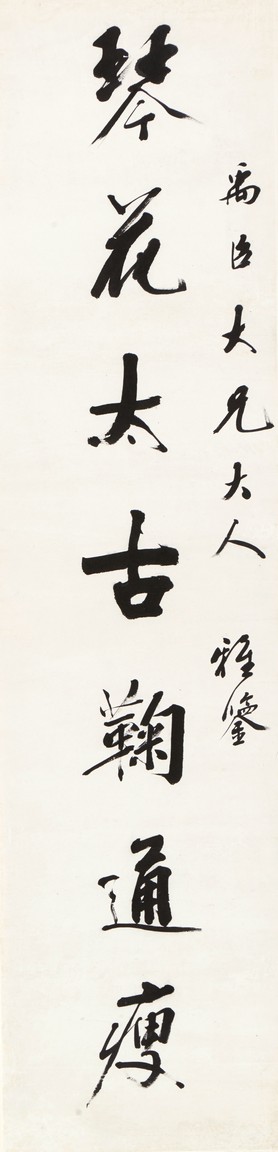 禹臣大兄大人 雅鑒
琴花太古鞠通瘦